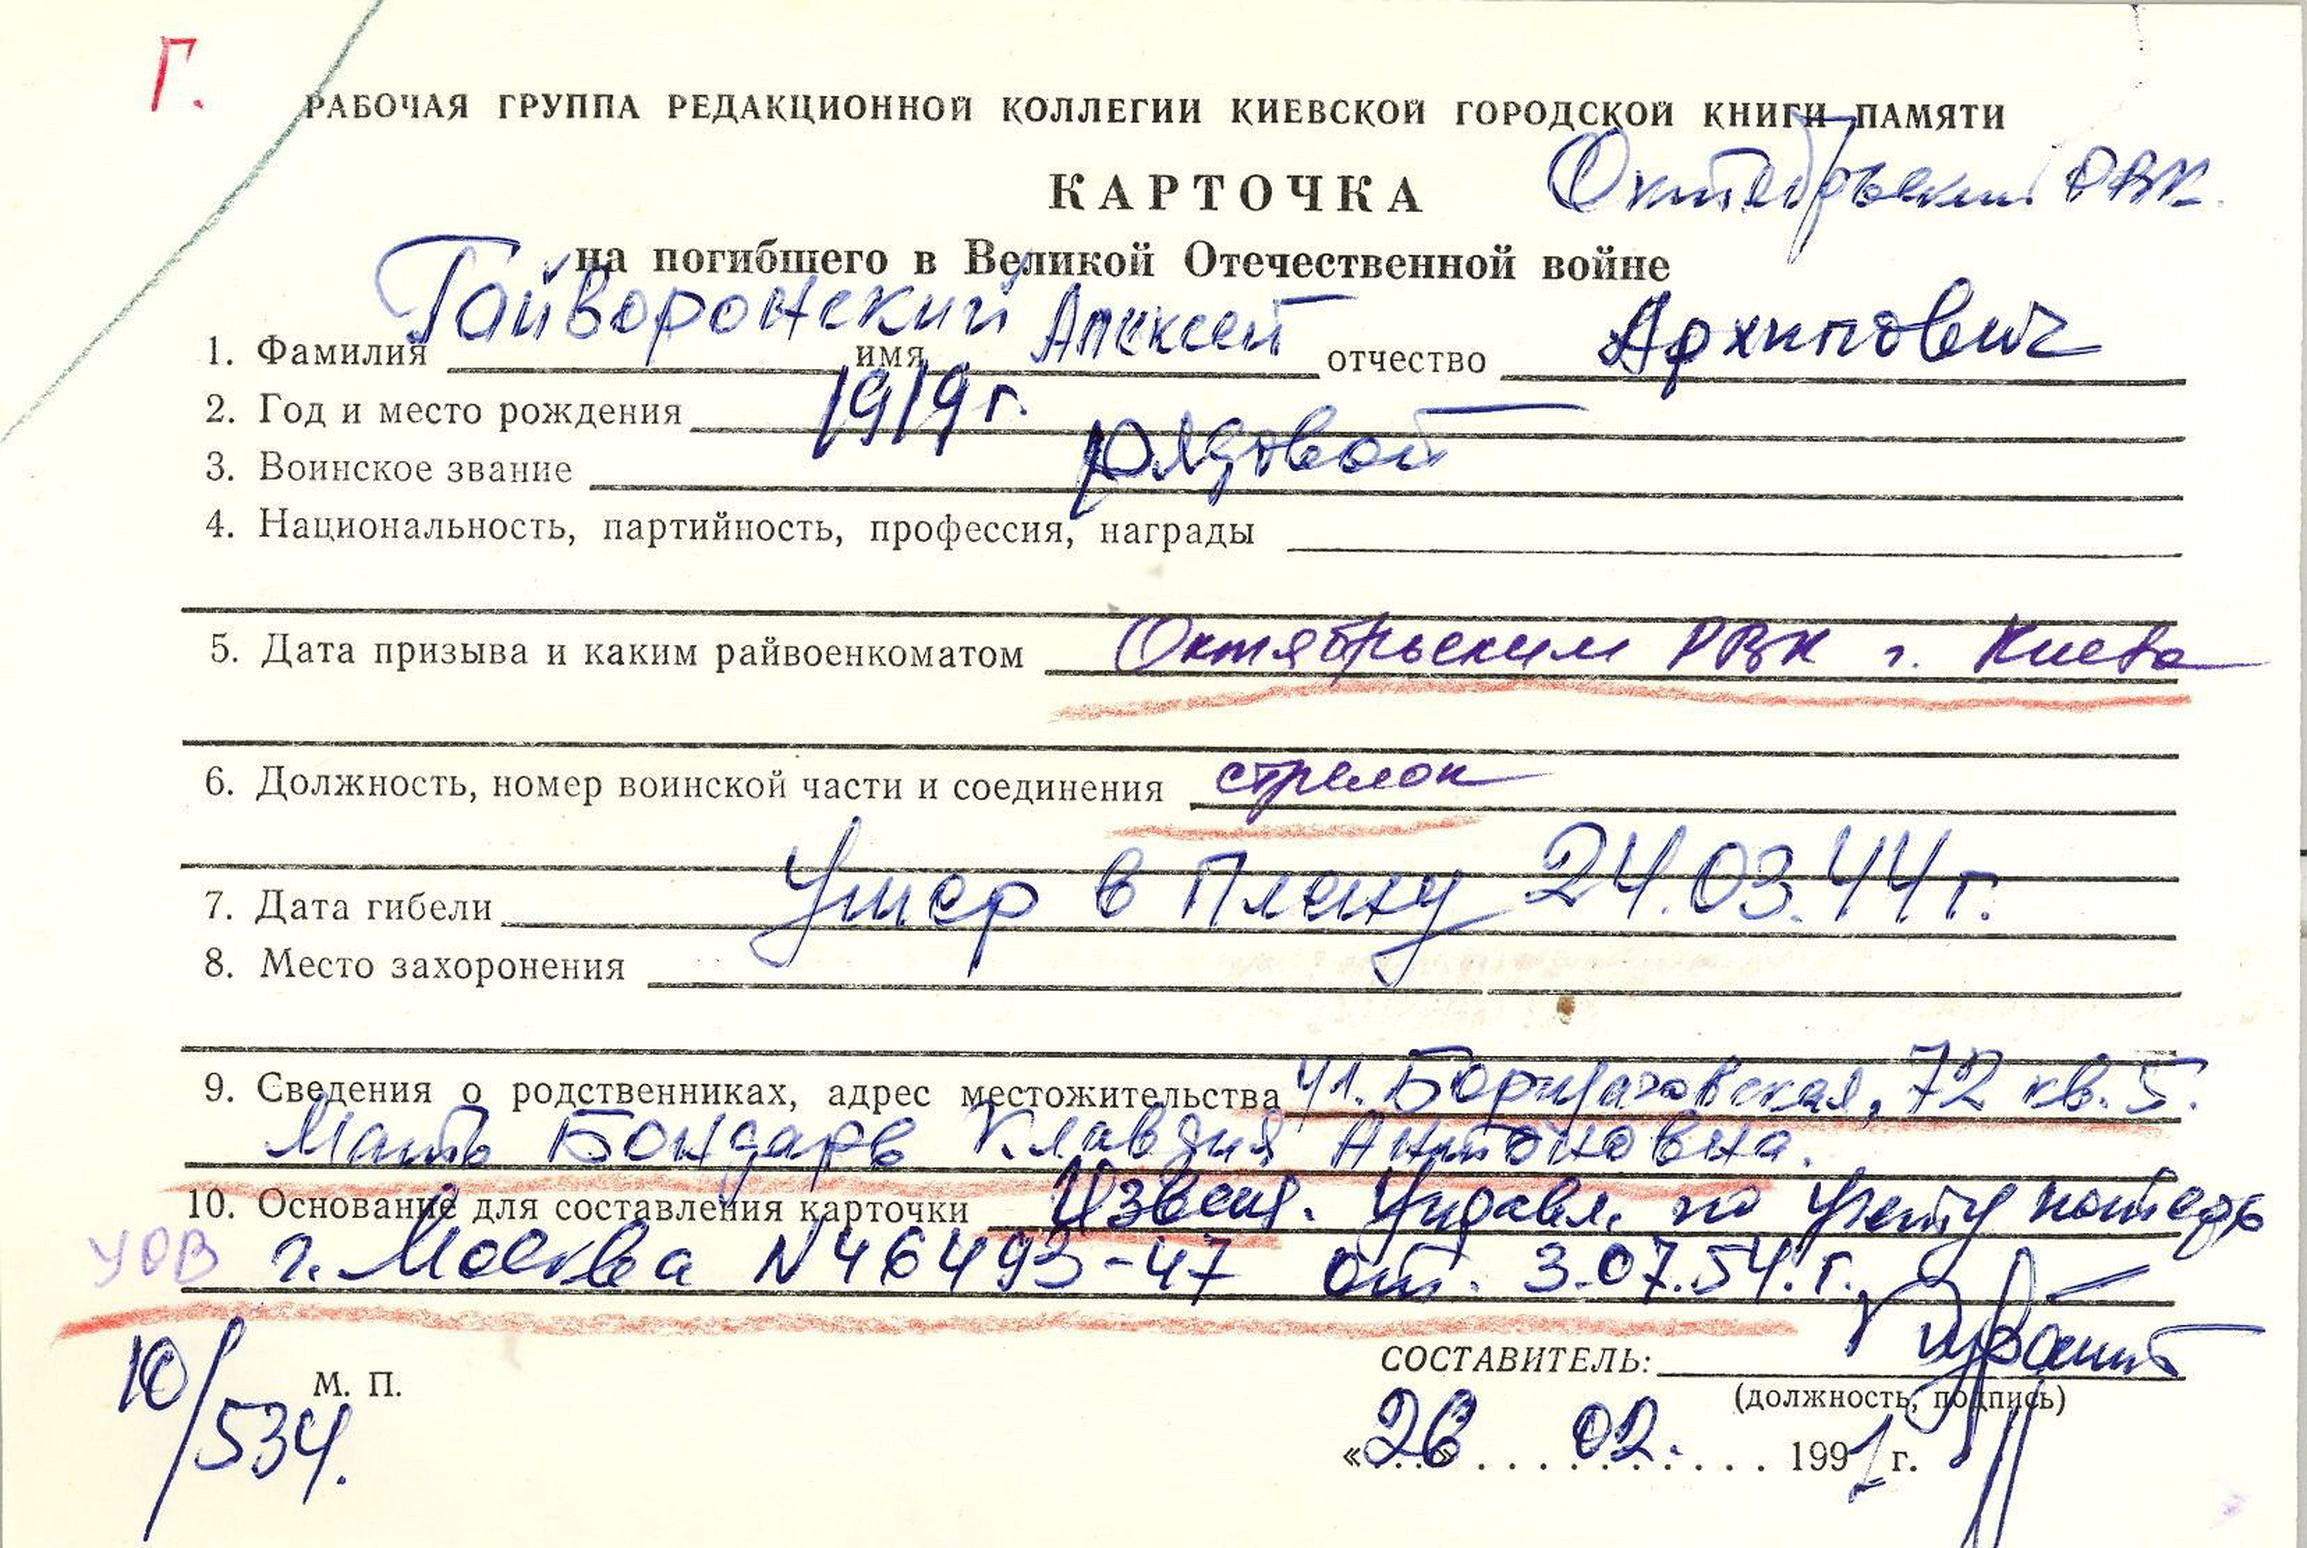 Г.
РАБОЧАЯ ГРУППА РЕДАКЦИОННОЙ КОЛЛЕГИИ КИЕВСКОЙ ГОРОДСКОЙ КНИГИ ПАМЯТИ
КАРТОЧКА Октябрьский РВК.
на погибшего в Великой Отечественной войне
1. Фамилия Гайворонский имя Алексей отчество Архипович
2. Год и место рождения 1919 г.
3. Воинское звание рядовой
4. Национальность, партийность, профессия, награды
5. Дата призыва и каким райвоенкоматом Октябрьским РВК г. Киева
6. Должность, номер воинской части и соединения стрелок
7. Дата гибели Умер в плену 24.03.44 г.
8. Место захоронения
9. Сведения о родственниках, адрес местожительства ул. Борщаговская, 72 кв. 5.
Мать Бондарь Клавдия Антоновна.
10. Основание для составления карточки Извещ. Управл. по учету потерь
УОВ г. Москва N 46493-47 от. 3.07.54.г.
СОСТАВИТЕЛЬ:
10/534. М. П. (должность, подпись)
«26» 02. 1991 г.